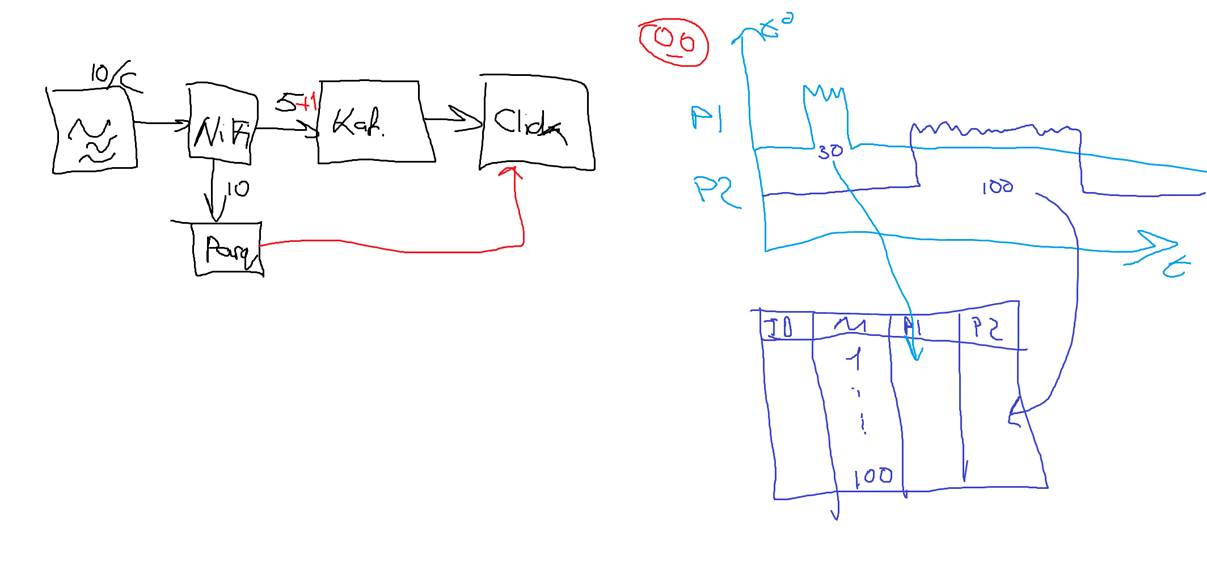 10/c
NiFi
5+1
Kaf.
Click
10
Parq
00
t°
P1
30
P2
100
t
ID
N
P1
P2
1
100